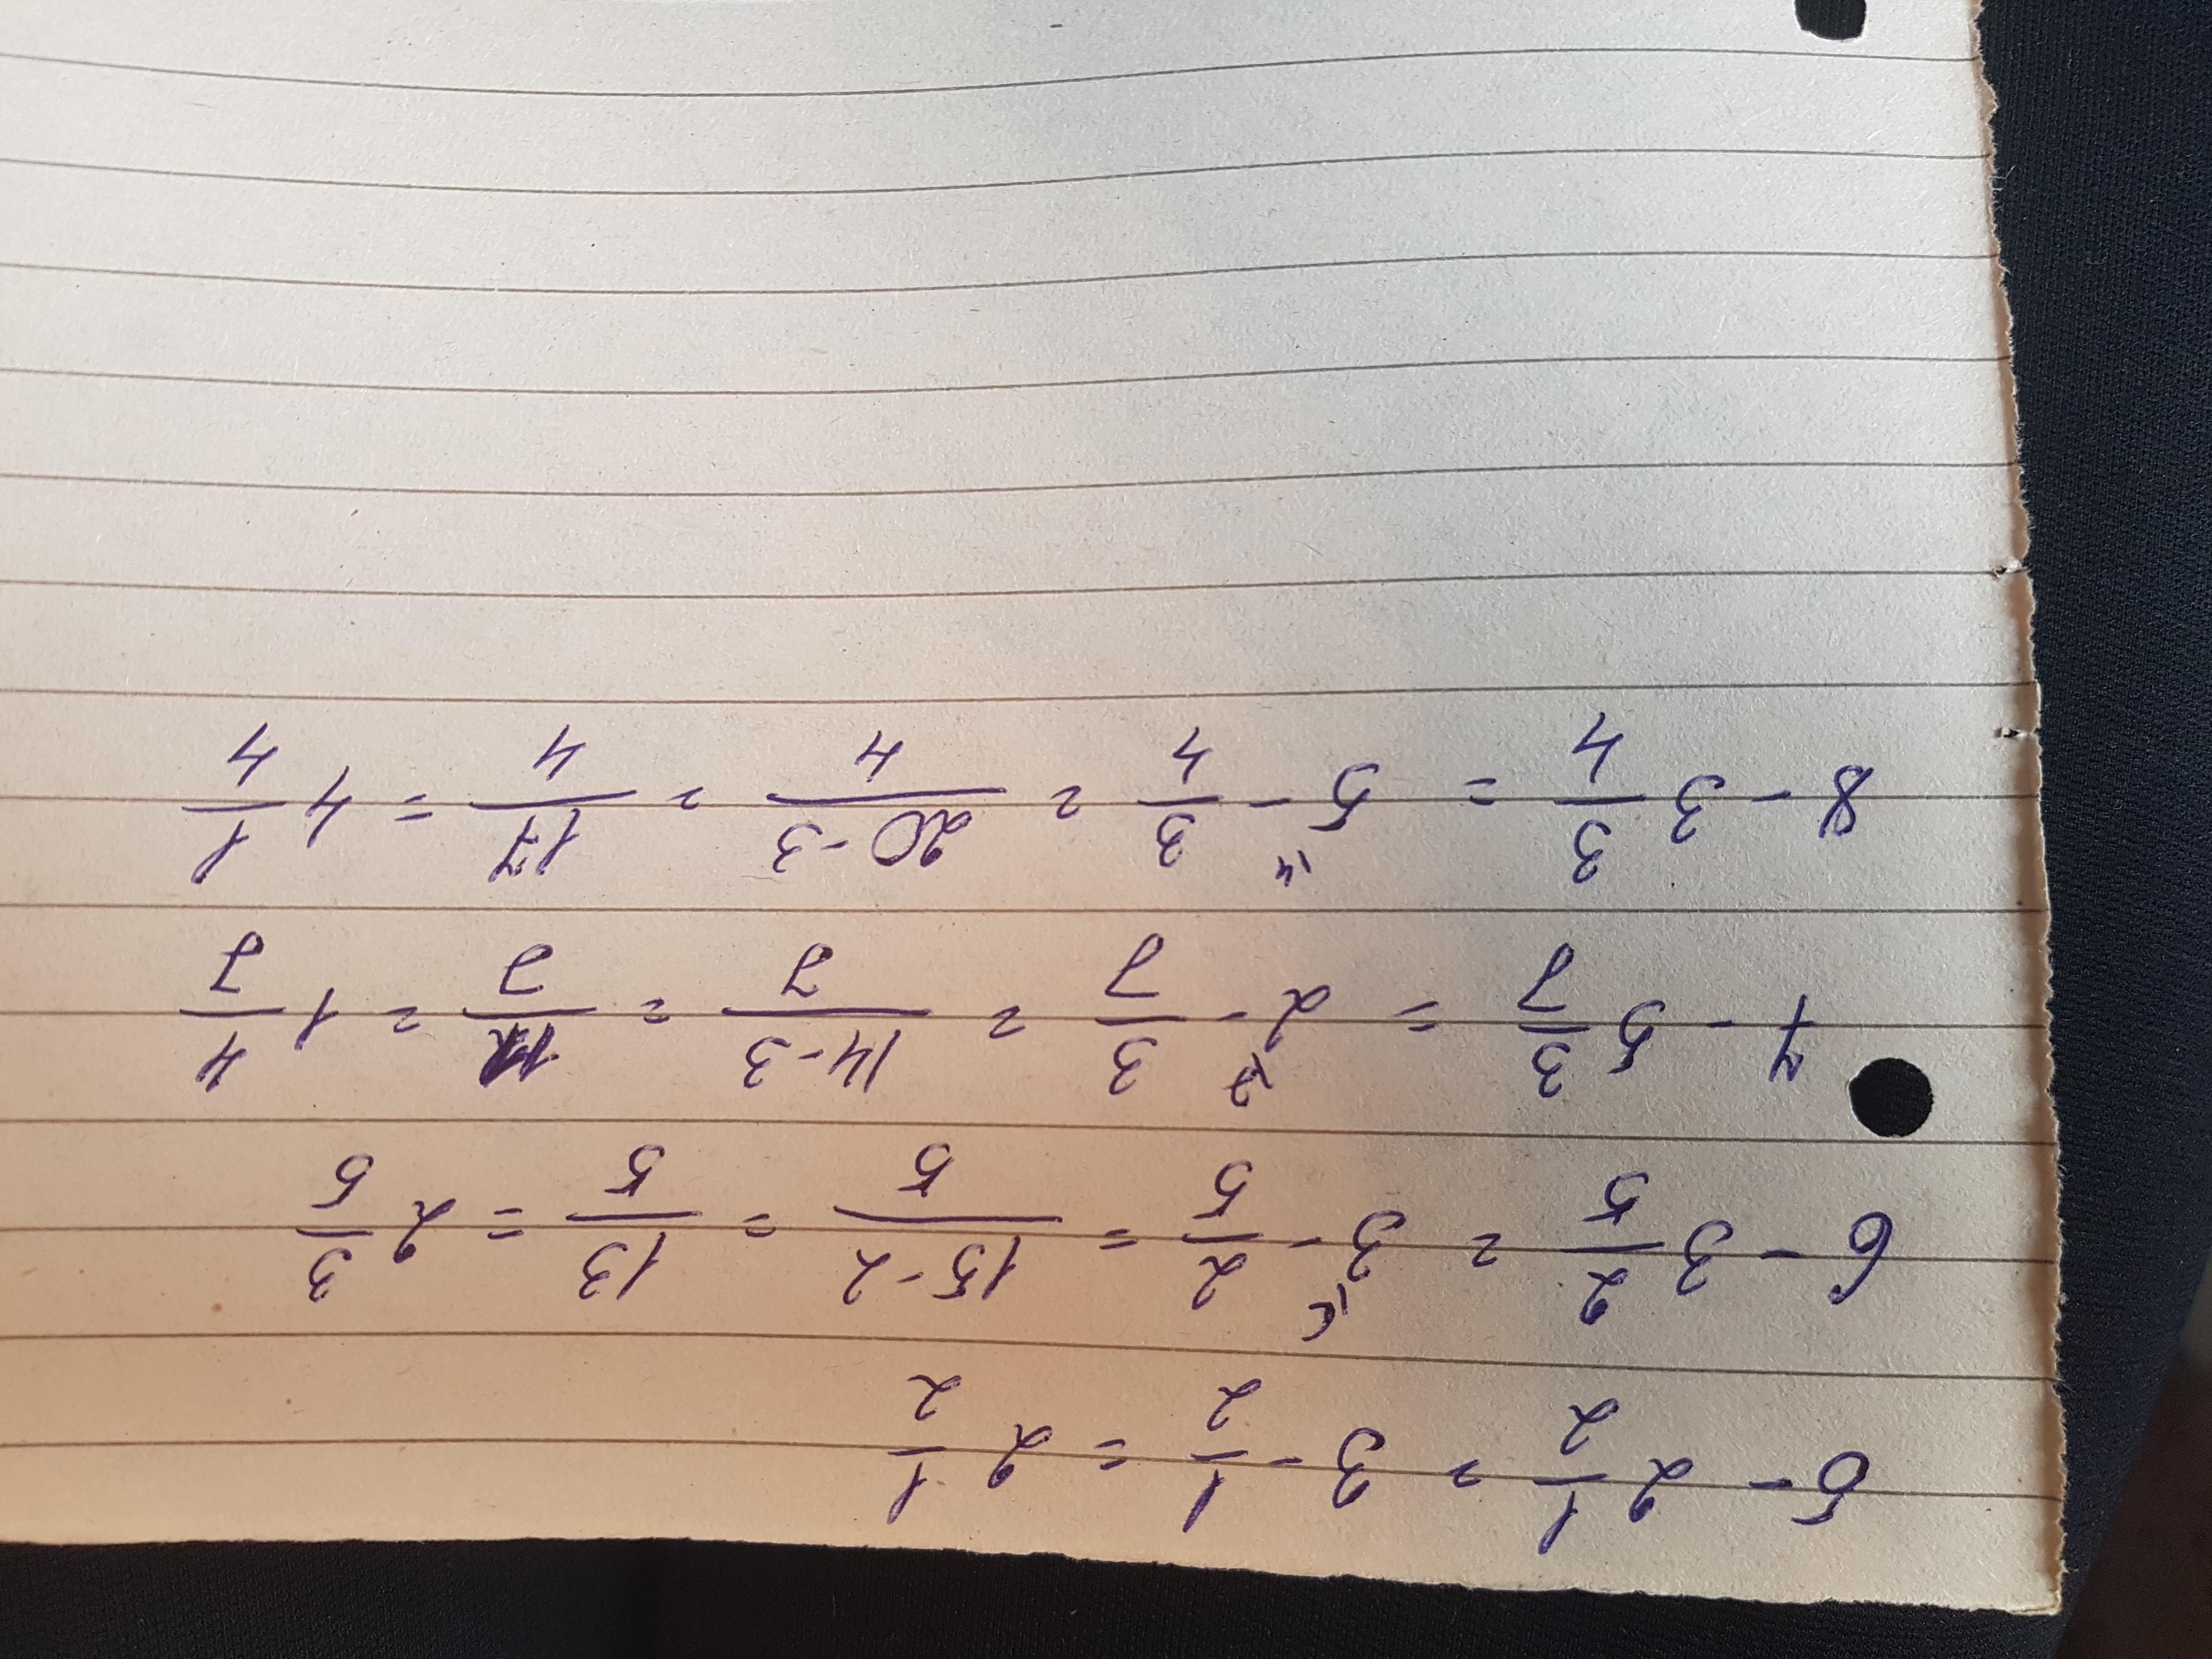 5 - 2 1/2 = 3 - 1/2 = 2 1/2
6 - 3 2/5 = 3 - 2/5 = (15-2)/5 = 13/5 = 2 3/5
7 - 5 3/7 = 2 - 3/7 = (14-3)/7 = 11/7 = 1 4/7
8 - 3 3/4 = 5 - 3/4 = (20-3)/4 = 17/4 = 4 1/4